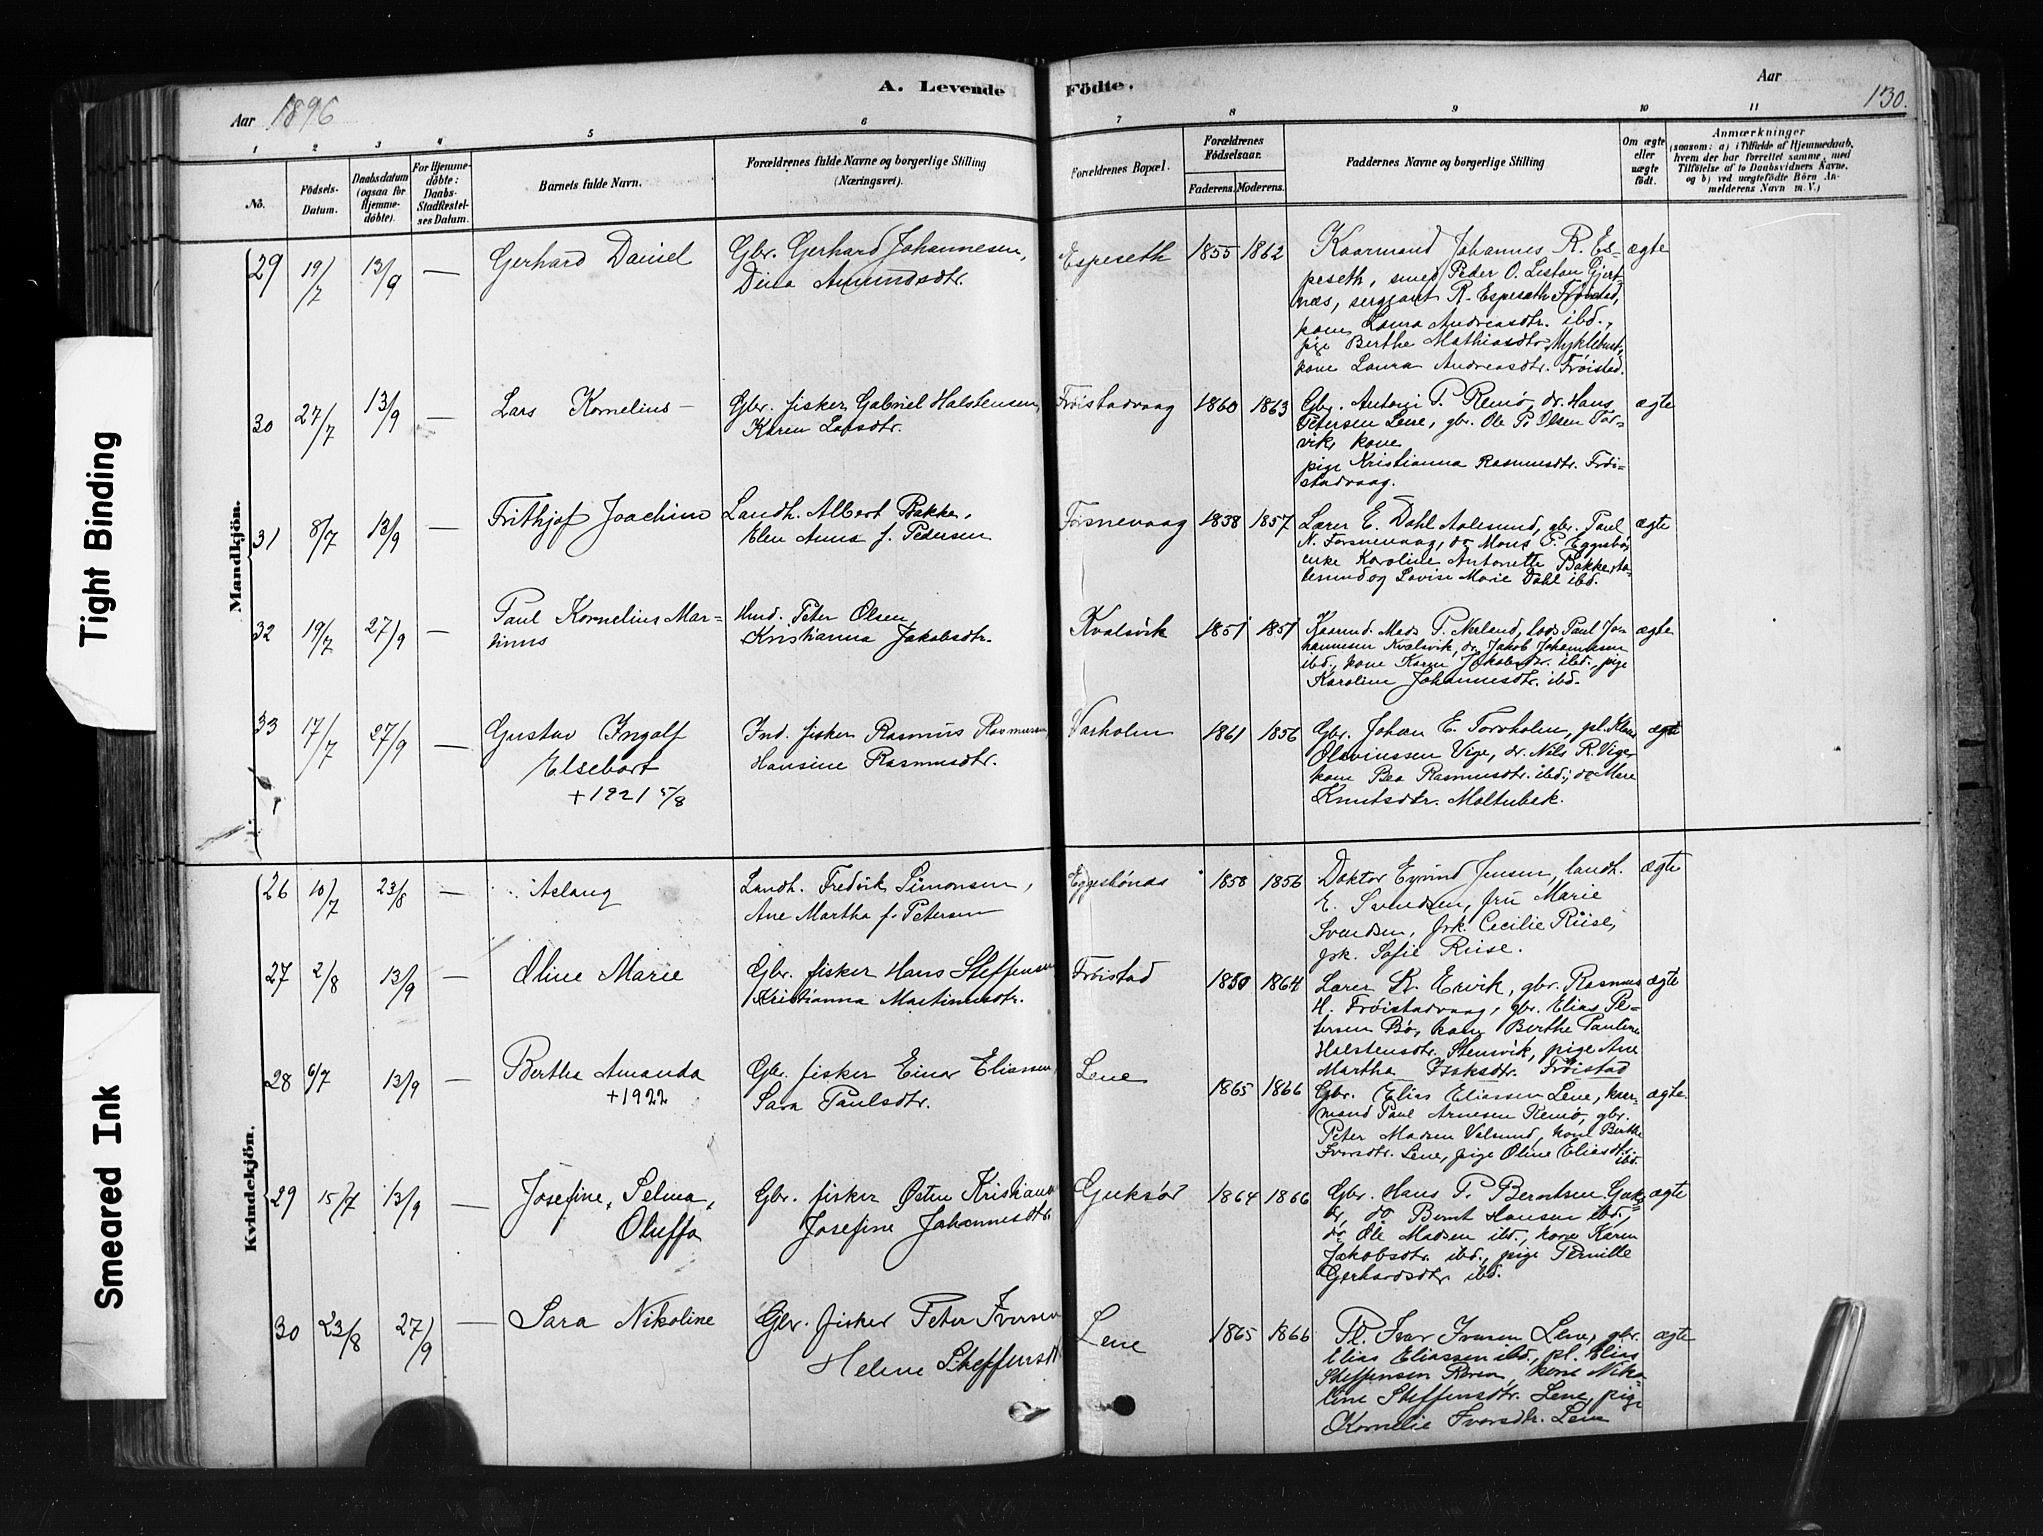 Tight Binding
Smeared Ink
Aar 1896
A. Levende Födte.
Aar
130.
1 2 3 4 5 6 7 8 9 10 11
No.
Födsels-
Datum.
Daabsdatum
(ogsaa for
Hjemme-
döbte).
For Hjemme-
döbte:
Daabs-
Stadfæstel-
ses Datum.
Barnets fulde Navn.
Forældrenes fulde Navne og borgerlige Stilling
(Næringsvei).
Forældrenes Bopæl.
Forældrenes
Födselsaar.
Faderens. Moderens.
Faddernes Navne og borgerlige Stilling
Om ægte
eller
uægte
födt.
Anmærkninger
(saasom: a) i Tilfælde af Hjemmedaab,
hvem der har forrettet samme, med
Tilföielse af to Daabsvidners Navne,
og b) ved uægtefödte Börn An-
melderens Navn m. V.)
Mandkjön.
29 19/7 13/9 —
Gerhard Daniel
Gbr. Gerhard Johannesen,
Dina Amundsdtr.
Espeseth 1855 1862
Kaarmand Johannes R. Es-
peseth, smed Peder O. Liston Gjert-
næs, sergeant R. Espeseth Frøistad,
kone Laura Andreasdtr. ibd.,
pige Berthe Mathiasdtr. Myklebust,
kone Laura Andreasdtr. Frøistad.
ægte
30 27/7 13/9 —
Lars Kornelius —
Gbr. fisker Gabriel Halstensen,
Karen Lafsdtr.
Frøistadvaag 1860 1863
Gbr. Antoni P. Remø, do. Hans
Petersen Lene, gbr. Ole P. Olsen Tor-
vik, kone
pige Kristianna Rasmusdtr. Frøi-
stadvaag.
ægte
31 8/7 13/9 —
Frithjof Joachim
Landh. Albert Bakke,
Elen Anna f. Pedersen
Torsnevaag 1858 1857
Lærer E. Dahl Aalesund, gbr. Paul
N. Torsnevaag, do Mons P. Eggesbø,
enke Karoline Antonette Bakke Aa-
lesund og Lovise Marie Dahl ibd.
ægte
32 19/7 27/9 —
Paul Kornelius Mar-
tinus
Hmd. Peter Olsen
Kristianna Jakobsdtr.
Kvalsvik 1851 1851
Kaarmd. Mads P. Nerland, lods Paul Jo-
hannesen Kvalsvik, do. Jakob Johannesen
ibd., kone Karen Jakobsdtr. ibd., pige
Karoline Johannesdtr. ibd.
ægte
33 17/7 27/9 —
Gustav Ingolf
Elsebart
+ 1921 5/8
Ind. fisker Rasmus Rasmussen,
Hansine Rasmusdtr.
Varholm 1861 1856
Gbr. Johan E. Torvholm, pl. Klaus
Olavinssen Vige, do. Nils R. Vige,
kone Bea Rasmusdtr. ibd., do Mare
Knutsdtr. Moltubak.
ægte
Kvindekjön.
26 10/7 23/8 —
Aslaug
Landh. Fredrik Simonsen,
Ane Martha f. Petersen
Eggesbönes 1858 1856
Doktor Eyvind Jensen, landh.
E. Svendsen, fru Marie
Svendsen, frk. Cecilie Riise,
frk. Sofie Riise.
ægte
27 2/8 13/9 —
Oline Marie
Gbr. fisker Hans Steffensen
Kristianna Martinusdtr.
Frøistad 1850 1864
Lærer K. Ervik, gbr. Rasmus
H. Frøistadvaag, gbr. Elias Pe-
tersen Bø, kone Berthe Pauline
Halstensdtr. Stensvik, pige Ane
Martha Isaksdtr. Frøistad
ægte
28 6/7 13/9 —
Bertha Amanda
+ 1922
Gbr. fisker Einar Eliassen,
Sara Paulsdtr.
Lene 1865 1866
Gbr. Elias Eliassen Lene, kaar-
mand Paul Arnesen Remø, gbr.
Peter Madsen Valsund, kone Berthe
Ivarsdtr. Lene, pige Oline Eliasdtr.
ibd.
ægte
29 15/7 13/9 —
Josefine, Selma,
Oluffa
Gbr. fisker Østen Kristiansen
Josefine Johannesdtr.
Gjuksør 1864 1866
Gbr. Hans P. Berntsen Gjuks-
ør, do Bernt Hansen ibd.,
do Ole Madsen ibd., kone Karen
Jakobsdtr. ibd., pige Pernille
Gerhardsdtr. ibd.
ægte
30 23/8 27/9 —
Sara Nikoline
Gbr. fisker Peter Iversen
Helene Steffensdt
Lene 1865 1866
Pl. Ivar Iversen Lene, gbr.
Elias Eliassen ibd., pl. Elias
Steffensen Røren, kone Niko-
line Steffensdtr. Lene, pige
Kornelie Ivarsdtr. Lene
ægte